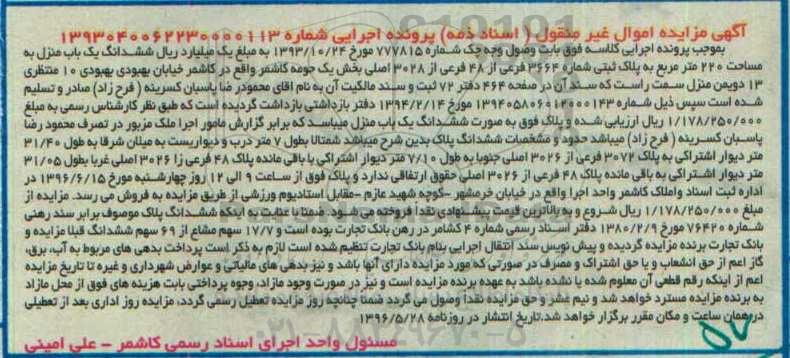 آگهی مزایده اموال غیر منقول ( اسناد ذمه) پرونده اجرایی شماره ۱۳۹۳۰۴۰۰۶۲۲۳۰۰۰۰۱۱۳
بموجب پرونده اجرایی کلاسه فوق بابت وصول وجه چک شماره ۷۷۷۸۱۵ مورخ ۱۳۹۳/۱۰/۲۴ به مبلغ یک میلیارد ریال ششدانگ یک باب منزل به
مساحت ۲۲۰ متر مربع به پلاک ثبتی شماره ۳۶۶۴ فرعی از ۴۸ فرعی از ۳۰۲۸ اصلی بخش یک حومه کاشمر واقع در کاشمر خیابان بهبودی بهبودی ۱۰ منتظری
۱۳ دویمن منزل سمت راست که سند آن در صفحه ۴۶۴ دفتر ۷۲ ثبت و سند مالکیت آن به نام اقای محمودرضا پاسبان کسرینه ( فرح زاد) صادر و تسلیم
شده است سپس ذیل شماره ۱۳۹۴۰۵۸۰۶۰۱۲۰۰۰۱۴۳ مورخ ۱۳۹۴/۲/۱۴ دفتر بازداشتی بازداشت گردیده است که طبق نظر کارشناس رسمی به مبلغ
۱/۱۷۸/۲۵۰/۰۰۰ ریال ارزیابی شده و پلاک فوق به صورت ششدانگ یک باب منزل میباسد که برابر گزارش مامور اجرا ملک مزبور در تصرف محمود رضا
پاسبان کسرینه ( فرح زاد) میباشد حدود و مشخصات ششدانگ پلاک بدین شرح میباشد شمتالا بطول ۷ متر درب و دیواریست به میلان شرقا به طول ۳۱/۴۰
متر دیوار اشتراکی به پلاک ۳۰۷۲ فرعی از ۳۰۲۶ اصلی جنوبا به طول ۷/۱۰ متر دیوار اشتراکی با باقی مانده پلاک ۴۸ فرعی زا ۳۰۲۶ اصلی غربا بطول ۳۱/۰۵
متر دیوار اشتراکی به باقی مانده پلاک ۴۸ فرعی از ۳۰۲۶ اصلی حقوق ارتفاقی ندارد و پلاک فوق از ساعت ۹ الی ۱۲ روز چهارشنبه مورخ ۱۳۹۶/۶/۱۵ در
اداره ثبت اسناد واملاک کاشمر واحد اجرا واقع در خیابان خرمشهر -کوچه شهید عازم -مقابل استادیوم ورزشی از طریق مزایده به فروش می رسد. مزایده از
مبلغ ۱/۱۷۸/۲۵۰/۰۰۰ ریال شروع و به بالاترین قیمت پیشنهادی نقدا فروخته می شود. ضمنا با عنایت به اینکه ششدانگ پلاک موصوف برابر سند رهنی
شماره ۷۶۴۲۰ مورخ ۱۳۸۰/۲/۹ دفتر اسناد رسمی شماره ۴ کشامر در رهن بانک تجارت بوده است و ۱۷/۷ سهم مشاع از ۶۹ سهم ششدانگ قبلا مزایده و
بانک تجارت برنده مزایده گردیده و پیش نویس سند انتقال اجرایی بنام بانک تجارت تنظیم شده است لازم به ذکر است پرداخت بدهی های مربوط به آب، برق،
گاز اعم از حق انشعاب و یا حق اشتراک و مصرف در صورتی که مورد مزایده دارای آنها باشد و نیز بدهی های مالیاتی و عوارض شهرداری و غیره تا تاریخ مزایده
اعم از اینکه رقم قطعی آن معلوم شده یا نشده باشد به عهده برنده مزایده است و نیز در صورت وجود مازاد، وجوه پرداختی بابت هزینه های فوق از محل مازاد
به برنده مزایده مسترد خواهد شد و نیم عشر و حق مزایده نقدا وصول می گردد ضمنا چنانچه روز مزایده تعطیل رسمی گردد، مزایده روز اداری بعد از تعطیلی
درهمان ساعت و مکان مقرر برگزار خواهد شد.تاریخ انتشار در روزنامه ۱۳۹۶/۵/۲۸
مسئول واحد اجرای اسناد رسمی کاشمر - علی امینی